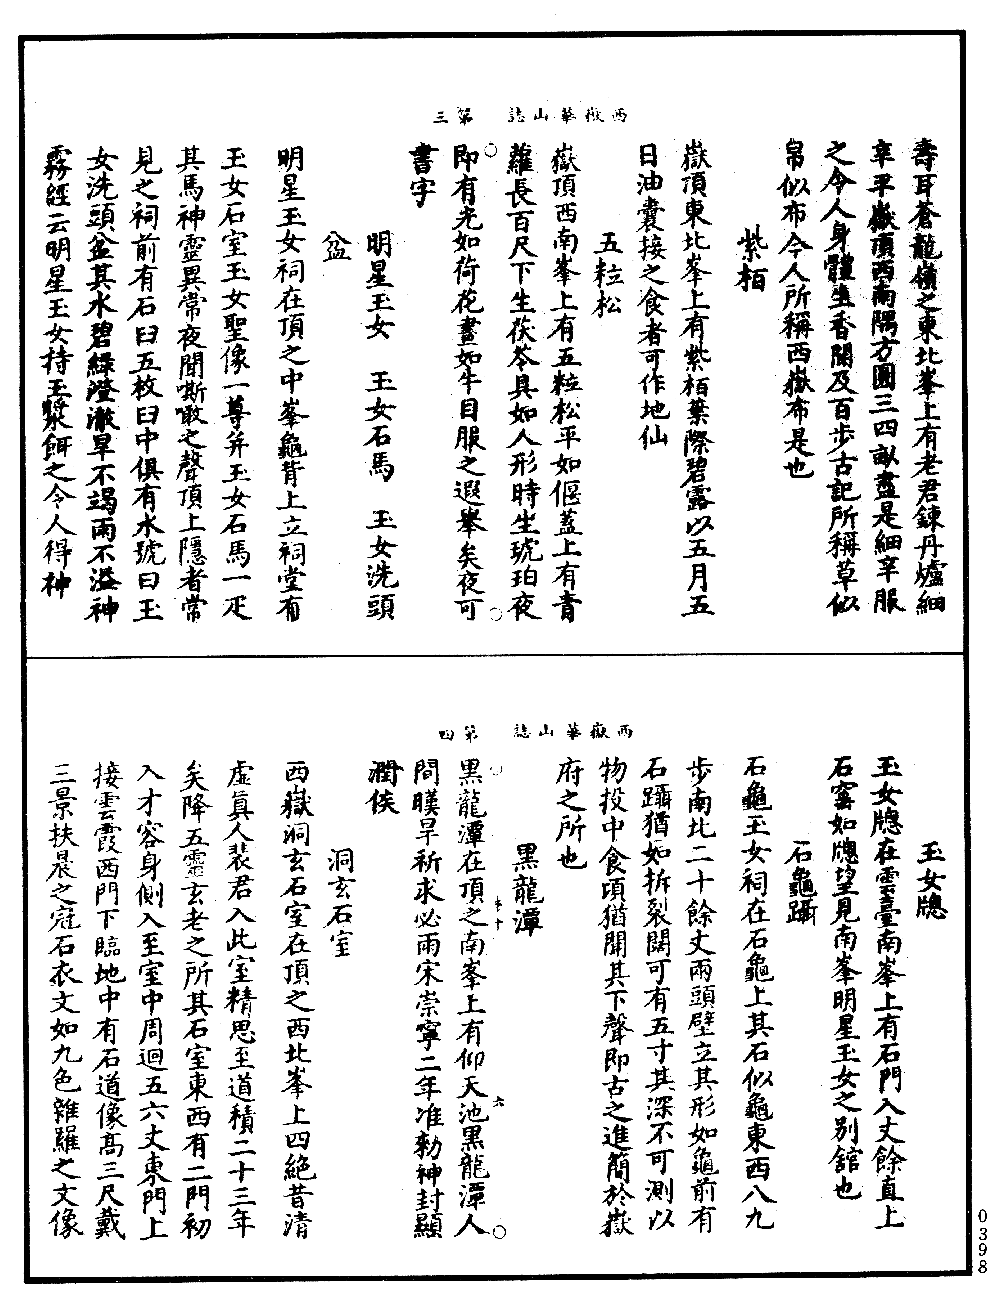 西嶽華山誌　第三
壽耳蒼龍嶺之東北峯上有老君鍊丹爐細
辛平嶽頂西南隅方圓三四畝盡是細辛服
之令人身體生香聞及百步古記所稱草似
帛似布今人所稱西嶽布是也
紫栢
嶽頂東北峯上有紫栢葉際碧露以五月五
日油囊接之食者可作地仙
五粒松
嶽頂西南峯上有五粒松平如偃蓋上有青
蘿長百尺下生茯苓具如人形時生琥珀夜
即有光如荷花晝如牛目服之遐舉矣夜可
書字
明星玉女　玉女石馬　玉女洗頭
盆
明星玉女祠在頂之中峯龜背上立祠堂有
玉女石室玉女聖像一尊并玉女石馬一疋
其馬神靈異常夜聞嘶噉之聲頂上隱者常
見之祠前有石臼五枚臼中俱有水號曰玉
女洗頭盆其水碧綠澄澈旱不竭雨不溢神
霧經云明星玉女持玉漿餌之令人得神
西嶽華山誌　第四
玉女牕
玉女牕在雲臺南峯上有石門入丈餘直上
石窗如牕望見南峯明星玉女之別舘也
石龜躡
石龜玉女祠在石龜上其石似龜東西八九
步南北二十餘丈兩頭壁立其形如龜前有
石躡猶如拆裂闊可有五寸其深不可測以
物投中食頃猶聞其下聲即古之進簡於嶽
府之所也
黑龍潭
黑龍潭在頂之南峯上有仰天池黑龍潭人
間暵旱祈求必雨宋崇寧二年准勑神封顯
潤侯
洞玄石室
西嶽洞玄石室在頂之西北峯上四絕昔清
虛真人裴君入此室精思至道積二十三年
矣降五靈玄老之所其石室東西有二門初
入才容身側入至室中周迴五六丈東門上
接雲霞西門下臨地中有石道像高三尺戴
三景扶晨之冠石衣文如九色雜羅之文像
0398